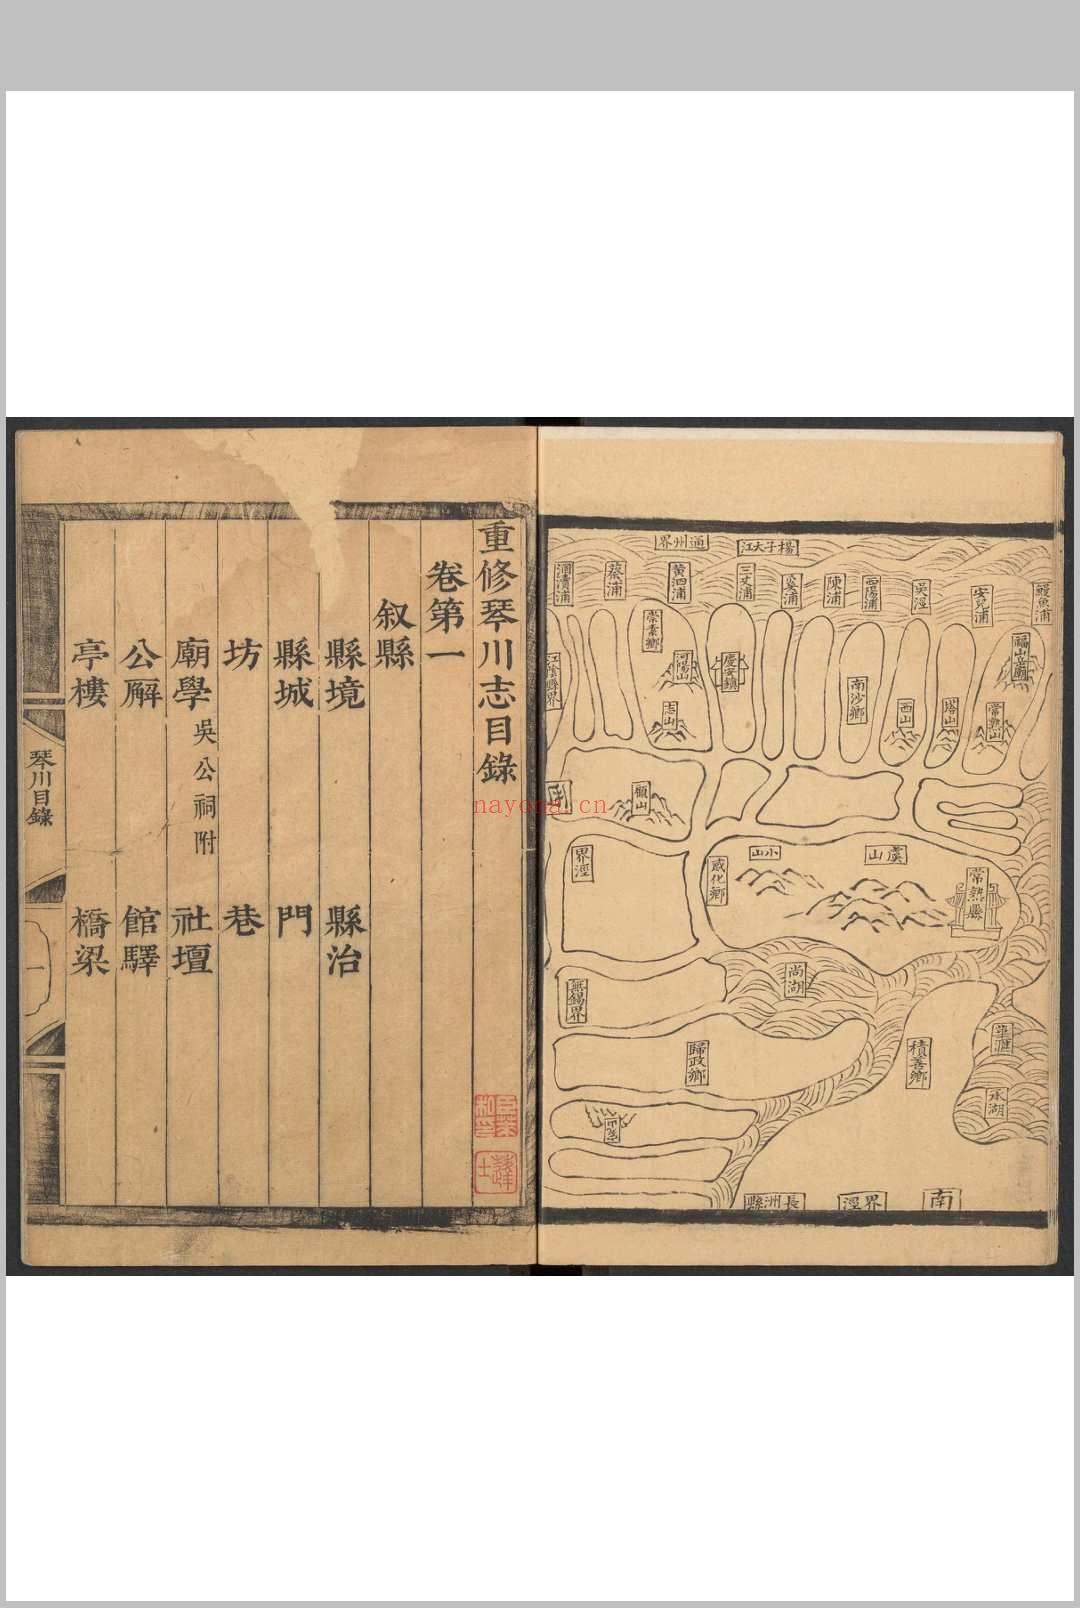 通州界
楊子大江
鰻魚浦
安兒浦
吳涇
西陽浦
陳浦
奚浦
三丈浦
黃泗浦
蔡浦
江陰縣界
崇素鄉
河陽山
慶安鎮
志山
南沙鄉
西山
塔山
常熟山
福山岳廟
顧山
界涇
感化鄉
小山
虞山
常熟縣
尚湖
無錫界
歸政鄉
積善鄉
華涇
承湖
長洲縣
界涇
南
重修琴川志目錄
卷第一
叙縣
縣境 縣治
縣城 門
坊 巷
廟學 吳公祠附 社壇
公廨 館驛
亭樓 橋梁
琴川目錄
一
nayona.cn